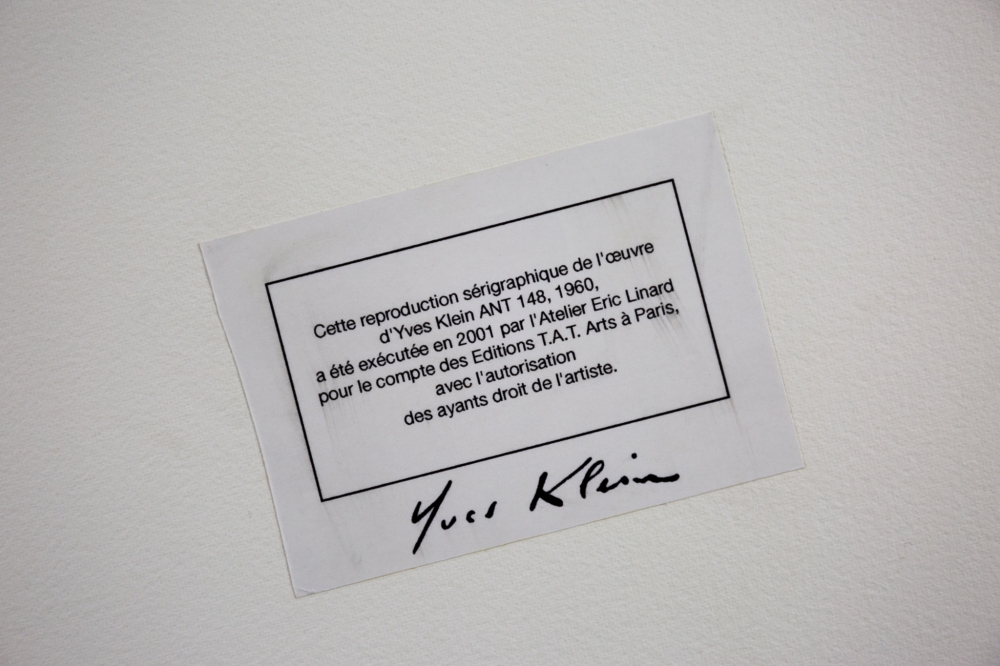 Cette reproduction sérigraphique de l'œuvre
d'Yves Klein ANT 148, 1960,
a été exécutée en 2001 par l'Atelier Eric Linard
pour le compte des Editions T.A.T. Arts à Paris,
avec l'autorisation
des ayants droit de l'artiste.
Yves Klein